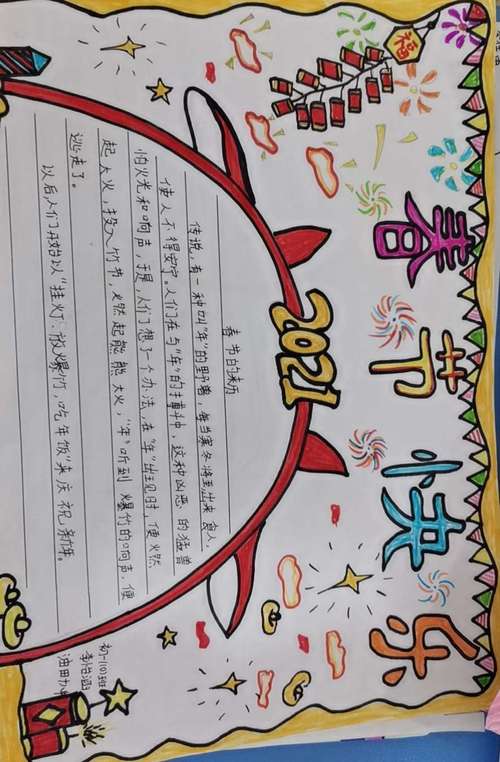 春节快乐
福
2021
春节的来历
传说,有一种叫"年"的野兽,每当寒冬将至出来食人,
使人不得安宁。人们在与"年"的搏斗中,这种凶恶的猛兽
怕火光和响声,于是,人们想了一个办法,在"年"出现时,便燃
起大火,投入竹节,燃起熊熊大火,"年"听到爆竹的响声,便
逃走了。
以后,人们开始以"挂灯、放爆竹,吃年饭"来庆祝新年。
初一(10)班
油田九中